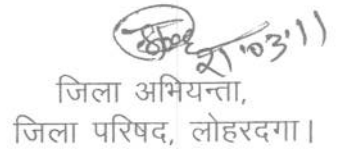 21.03.11
जिला अभियन्ता,
जिला परिषद, लोहरदगा।